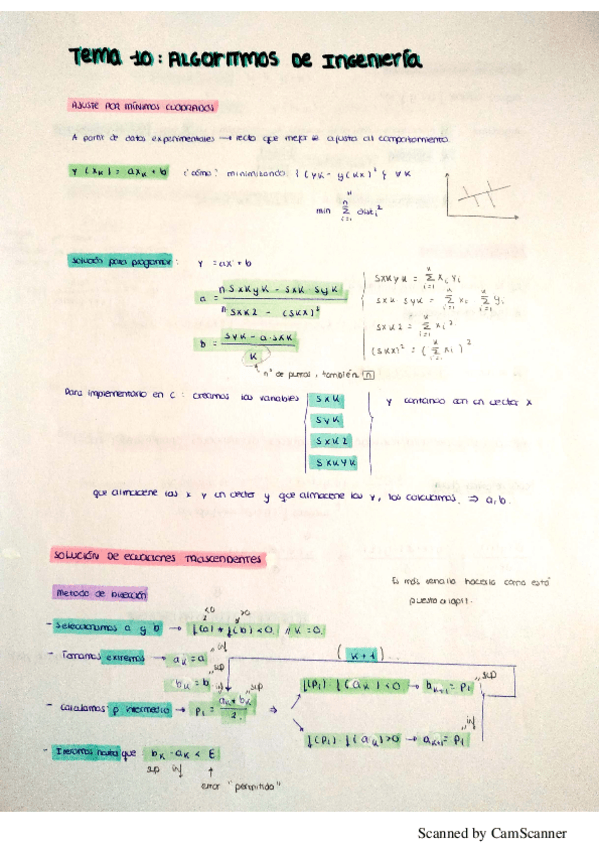 Tema 10: ALGORITMOS DE INGENIERÍA
AJUSTE POR MÍNIMOS CUADRADOS
A partir de datos experimentales → recta que mejor se ajusta al comportamiento.
Y (xk) = axk + b ¿cómo? minimizando { (yk - y(xk))² } ∀k
min Σ dist i²
Solución para programar: Y = ax + b
a = n SxKyK - SxK SyK / n SxK2 - (SxK)²
SxKyK = Σ xi yi
SxK SyK = Σ xi Σ yi
SxK2 = Σ xi²
(SxK)² = (Σ xi)²
b = SyK - a·SxK / K
nº de puntos, también n
Para implementarlo en C: creamos las variables SxK y contando con un vector x
SyK
SxK2
SxKyK
que almacene las x y un vector y que almacene las y, las calculamos. ⇒ a, b.
SOLUCIÓN DE ECUACIONES TRASCENDENTES
Método de Bisección
Es más sencillo hacerlo como está
puesto a lápiz.
<0 >0
- Seleccionamos a y b → f(a) * f(b) < 0 // K = 0.
- Tomamos extremos → aK = a inf
bK = b sup
(K+1)
- Calculamos p. intermedio → Pi = aK + bK / 2 ⇒
f(Pi) f(aK) < 0 → bK+1 = Pi sup
f(Pi) f(aK) > 0 → aK+1 = Pi inf
- Iteramos hasta que bK - aK < E
sup inf
error "permitido"
Scanned by CamScanner